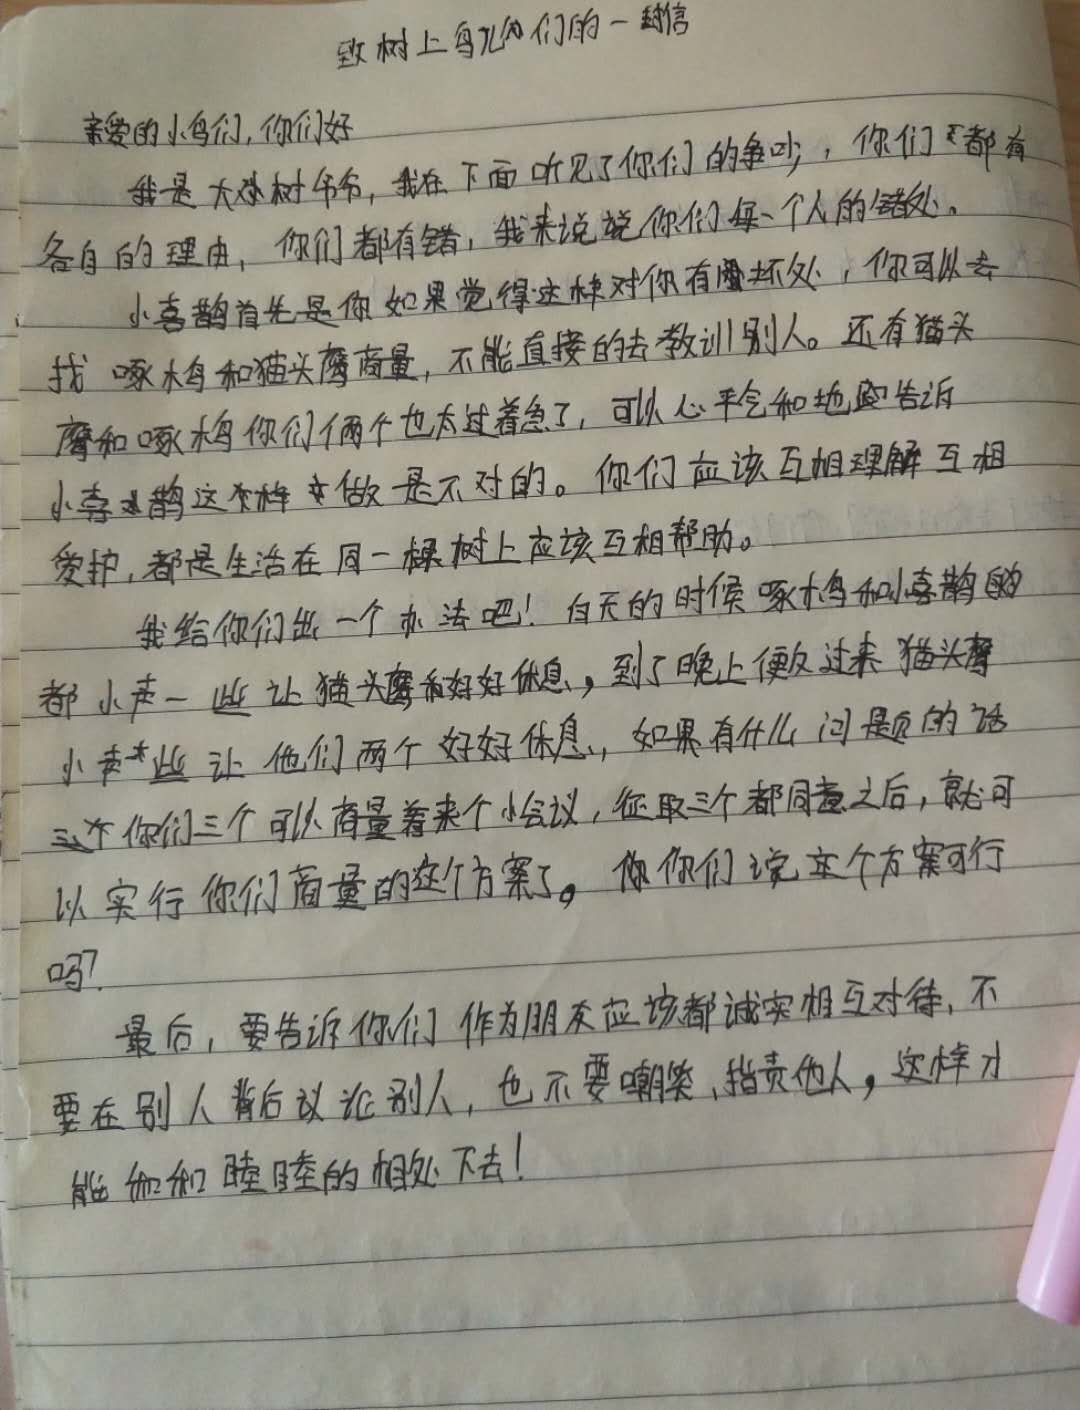 致树上鸟儿们的一封信
亲爱的小鸟们,你们好
我是大树爷爷,我在下面听见了你们的争吵,你们都有
各自的理由,你们都有错,我来说说你们每一个人的错处。
小喜鹊首先是你如果觉得这样对你有坏处,你可以去
找啄木鸟和猫头鹰商量,不能直接的去教训别人。还有猫头
鹰和啄木鸟你们俩个也太过着急了,可以心平气和地告诉
小喜鹊这样做是不对的。你们应该互相理解互相
爱护,都是生活在同一棵树上应该互相帮助。
我给你们出一个办法吧!白天的时候啄木鸟和小喜鹊
都小声一些让猫头鹰好好休息,到了晚上便反过来猫头鹰
小声些让他们两个好好休息,如果有什么问题的话
你们三个可以商量着来个小会议,征取三个都同意之后,就可
以实行你们商量的这个方案了。你们说这个方案可行
吗?
最后,要告诉你们作为朋友应该都诚实相互对待,不
要在别人背后议论别人,也不要嘲笑、指责他人,这样才
能和和睦睦的相处下去!